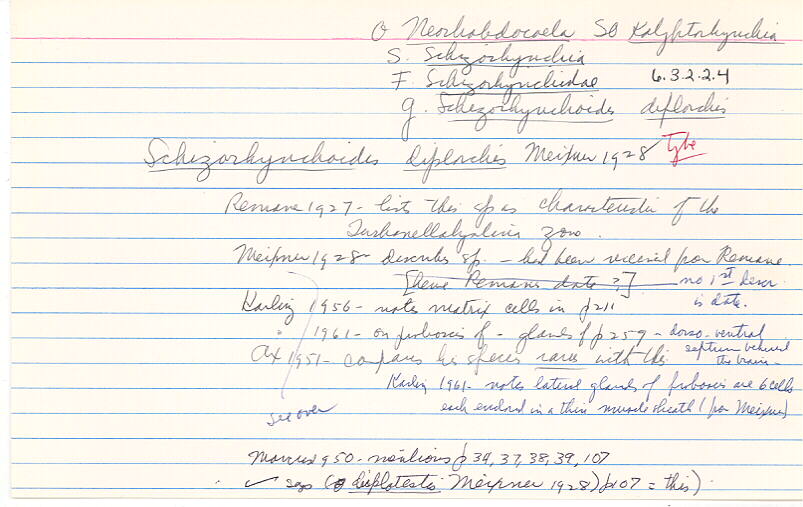 O Neorhabdocoela SO Kalyptorhynchia
S. Schizorhynchia
F. Schizorhynchidae 6.3.2.2.4
g. Schizorhynchoides diplorchis
Schizorhynchoides diplorchis Meixner 1928 Type
Remane 1927 - lists this sp as characteristic of the
Turbanellahyalina zone.
Meixner 1928 - describes sp. - had been received from Remane.
[have Remanes date ?] no 1st descr is date.
Karling 1956 - notes matrix cells in p 211
" 1961 - on proboscis of - glands of p 259 - dorso-ventral septum behind the brain -
Ax 1951 - compares his species with this
Karling 1961 - notes lateral glands of proboscis are 6 cells
each enclosed in a thin muscle sheath (from Meixner)
see over
Marcus 1950 - mentions p 34, 37, 38, 39, 107
✓ says ( diplotestis Meixner 1928) p 107 = this)